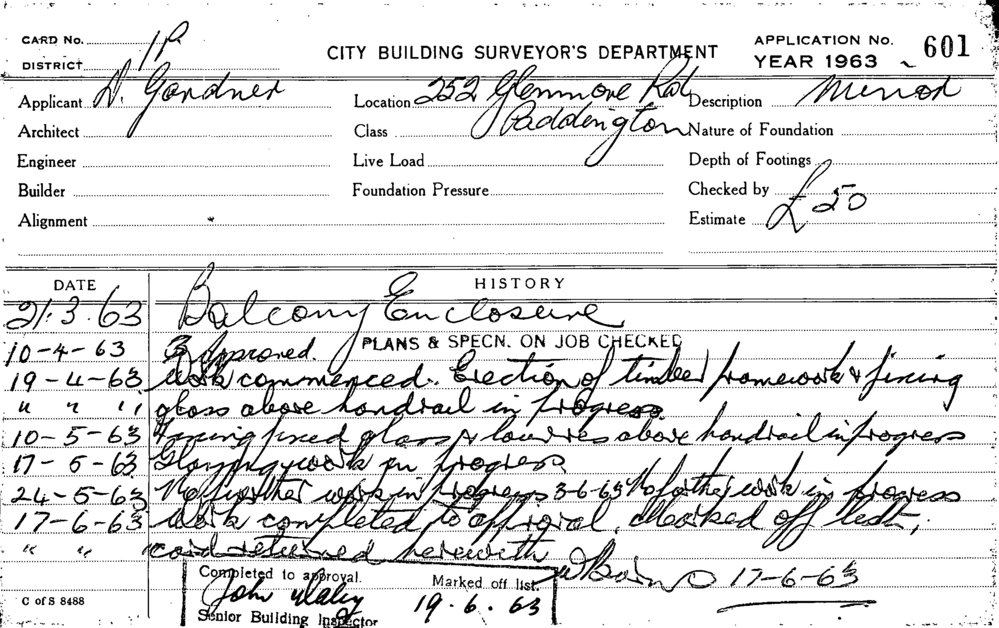 CARD No. 1P
CITY BUILDING SURVEYOR'S DEPARTMENT
APPLICATION No. 601
DISTRICT
YEAR 1963
Applicant D. Gardner
Location 252 Glenmore Rd, Paddington
Description Minor
Architect
Class
Nature of Foundation
Engineer
Live Load
Depth of Footings
Builder
Foundation Pressure
Checked by
Alignment
Estimate £50
DATE HISTORY
21.3.63 Balcony Enclosure
10-4-63 Approved. PLANS & SPECN. ON JOB CHECKED
19-4-63 Work commenced. Erection of timber framework & fixing
" " " glass above handrail in progress
10-5-63 Fixing fixed glass & louvres above handrail in progress
17-5-63 Glazing work in progress
24-5-63 No further work in progress 3-6-63 No further work in progress
17-6-63 Work completed to approval. Marked off list,
" " " card returned herewith 17-6-63
Completed to approval. Marked off list.
John Daley 19.6.63
Senior Building Inspector
C of S 8488